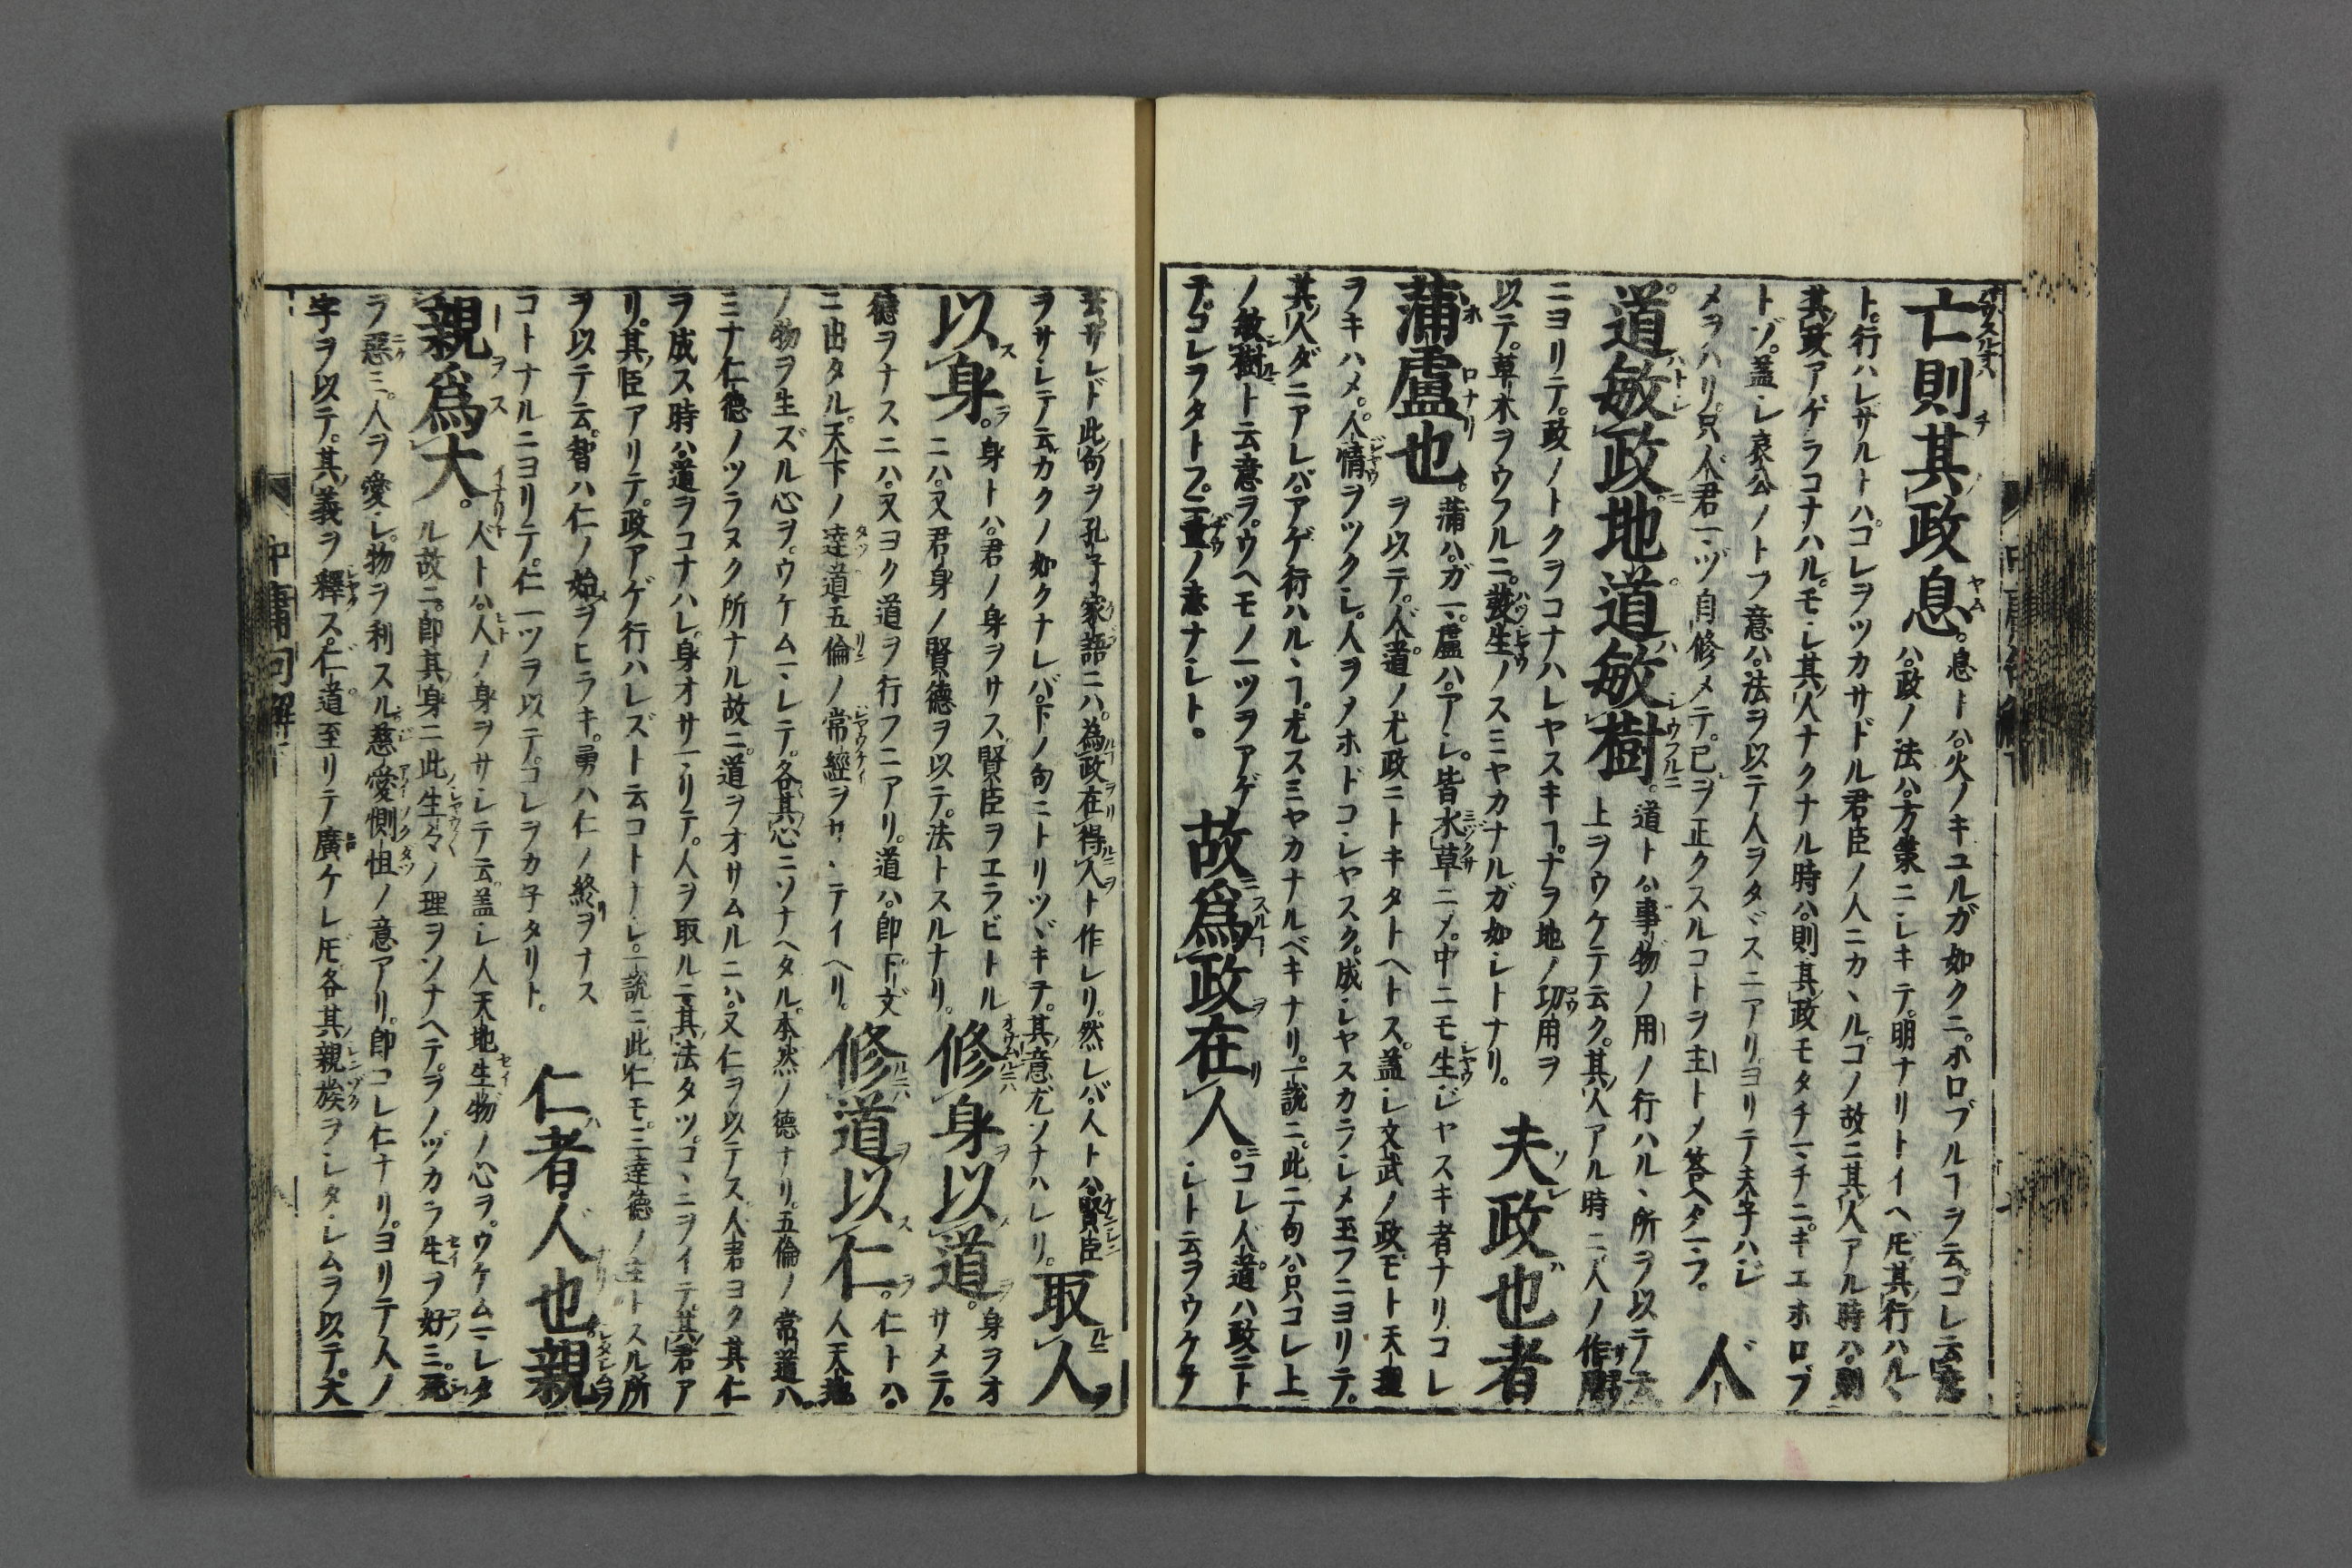 亡則其政息。息トハ。火ノキユルガ如クニ。ホロブルヿヲ云。コレ云意
ハ。政ノ法ハ。方策ニシキテ。明ナリトイヘ𪜈。其行ハルヽ
ト。行ハレザルトハ。コレヲツカサドル君臣ノ人ニカヽル。コノ故ニ其人アル時ハ。則
其政アゲラコナハル。モシ其人ナクナル時ハ。則其政モタチマチニ。キエホロブ
トゾ。蓋シ哀公ノトフ意ハ。法ヲ以テ人ヲタヾスニアリ。ヨリテ夫子ハジ
メヲハリ。只人君マヅ自修メテ。己ヲ正クスルコトヲ主トメ答ヘタマフ。人
道敏政地道敏樹。道トハ。事物ノ用ノ行ハルヽ所ヲ以テ云
上ヲウケテ云ク。其人アル時ニ人ノ作用
ニヨリテ。政ノトクヲコナハレヤスキヿ。ナヲ地ノ功用ヲ
以テ。草木ヲウフルニ。発生ノスミヤカナルガ如シトナリ。夫政也者
蒲盧也。蒲ハ。ガマ。盧ハ。アシ。皆水草ニメ。中ニモ生ジヤスキ者ナリ。コレ
ヲ以テ。人道ノ尤政ニトキタトヘトス。蓋シ文武ノ政モト天理
ヲキハメ。人情ヲツクシ。人ヲメホドコシヤスク。成シヤスカラシメ玉フニヨリテ。
其人ダニアレバ。アゲ行ハルヽヿ。尤スミヤカナルベキナリ。一説ニ。此二句ハ。只コレ上
ノ敏樹ト云意ヲ。ウヘモノ一ツヲアゲ
テ。コレヲタトフ。二重ノ意ナシト。故爲政在人。コレ人道ハ政ニト
シト云ヲウケテ
云サレド此句ヲ孔子家語ニハ。為政在得人ト作レリ。然レバ人トハ賢臣
ヲサシテ云。カクノ如クナレバ。下ノ句ニトリツヾキテ。其意尤ソナハレリ。取人
以身。身トハ。君ノ身ヲサス。賢臣ヲエラビトル
ニハ。又君身ノ賢徳ヲ以テ。法トスルナリ。修身以道。身ヲオ
サメテ。
徳ヲナスニハ。又ヨク道ヲ行フニアリ。道ハ。即下文
ニ出タル。天下ノ達道五倫ノ常經ヲサシテイヘリ。修道以仁。仁トハ。
人天地
ノ物ヲ生ズル心ヲ。ウケムマレテ。各其心ニソナヘタル。本然ノ徳ナリ。五倫ノ常道ハ。
ミナ仁徳ノツラヌク所ナル故ニ。道ヲオサムルニハ。又仁ヲ以テス。人君ヨク其仁
ヲ成ス時ハ。道ヲコナハレ。身オサマリテ。人ヲ取ルニ其法タツ。コヽニヲイテ其君ア
リ。其臣アリテ。政アゲ行ハレズト云コトナシ。一説ニ此仁モ。三達徳ノ主トスル所
ヲ以テ云。智ハ仁ノ始ヲヒラキ。勇ハ仁ノ終ヲナス
コトナルニヨリテ。仁一ツヲ以テ。コレヲカ子タリト。仁者人也親
親爲大。人トハ。人ノ身ヲサシテ云。蓋シ人天地生物ノ心ヲ。ウケムマレタ
ル故ニ。即其身ニ此生々ノ理ヲソナヘテ。ヲノヅカラ生ヲ好ミ。死
ヲ惡ミ。人ヲ愛シ。物ヲ利スル慈愛惻怛ノ意アリ。即コレ仁ナリ。ヨリテ人ノ
字ヲ以テ。其義ヲ釋ス。仁道至リテ廣ケレ𪜈。各其親族ヲシタシムヲ以テ。大
中庸句解下